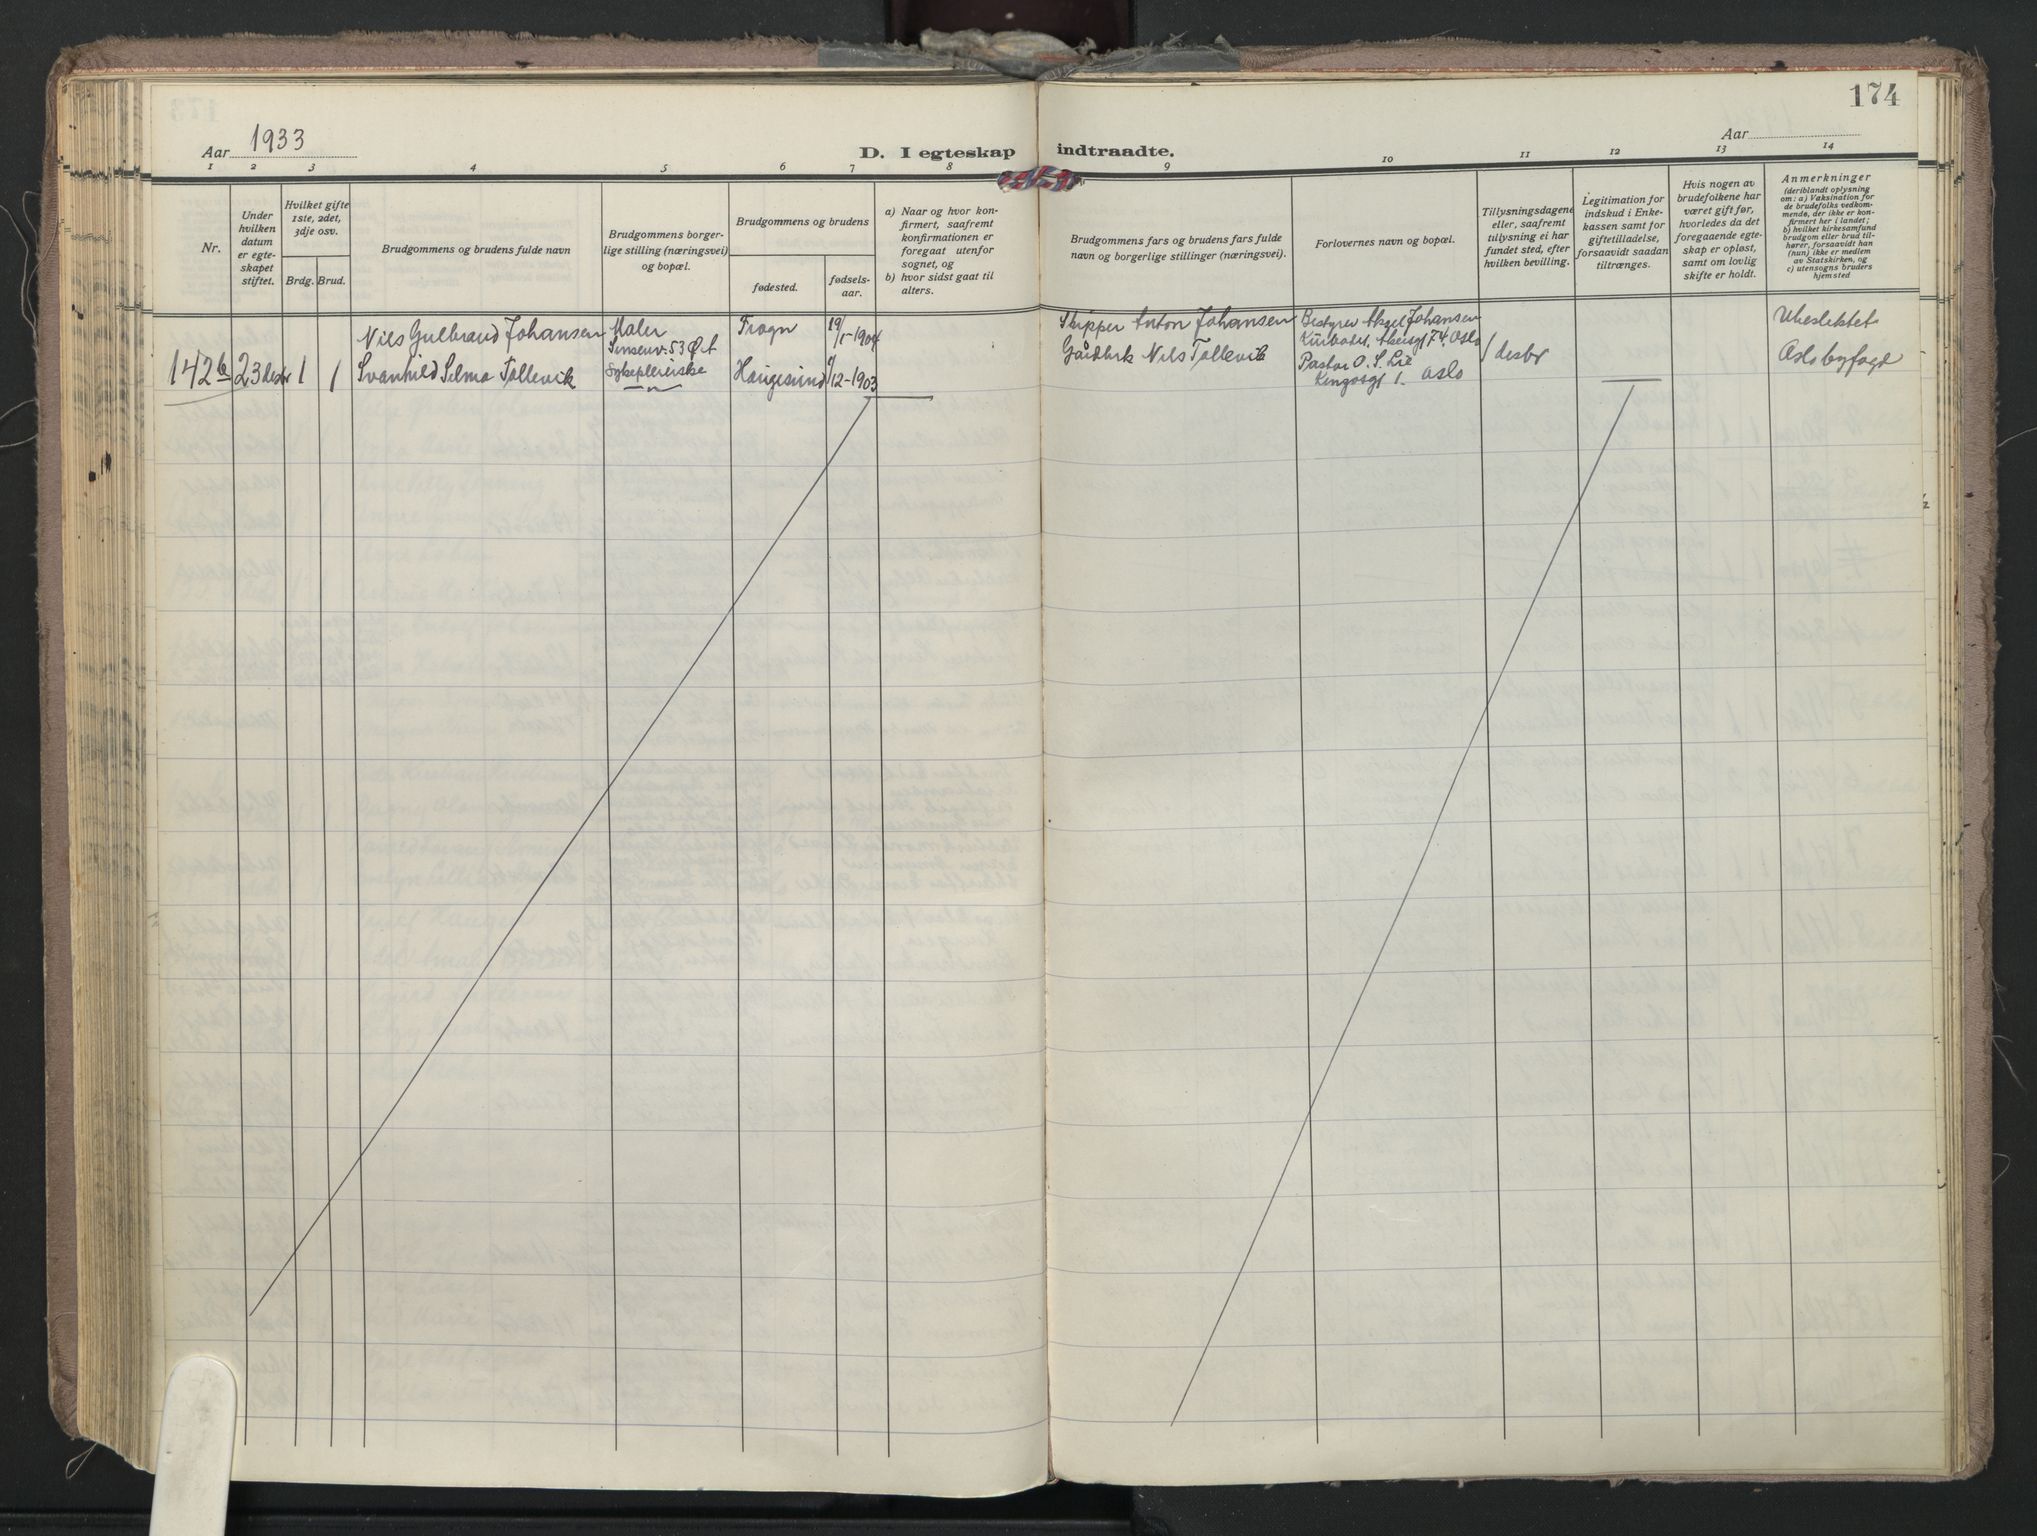 174
Aar 1933
Aar
D. I egteskap indtraadte.
1 2 3 4 5 6 7 8 9 10 11 12 13 14
Nr.
Under
hvilken
datum
er egte-
skapet
stiftet.
Hvilket gifte
1ste, 2det,
3dje osv.
Brdg. Brud.
Brudgommens og brudens fulde navn
Brudgommens og brudens borger-
lige stilling (næringsvei)
og bopæl.
Brudgommens og brudens
fødested.
fødsels-
aar.
a) Naar og hvor kon-
firmert, saafremt
konfirmationen er
foregaat utenfor
sognet, og
b) hvor sidst gaat til
alters.
Brudgommens fars og brudens fars fulde
navn og borgerlige stillinger (næringsvei).
Forlovernes navn og bopæl.
Tillysningsdagene
eller, saafremt
tillysning ei har
fundet sted, efter
hvilken bevilling.
Legitimation for
indskud i Enke-
kassen samt for
giftetilladelse,
forsaavidt saadan
tiltrænges.
Hvis nogen av
brudefolkene har
været gift før,
hvorledes da det
foregaaende egte-
skap er opløst,
samt om lovlig
skifte er holdt.
Anmerkninger
(deriblandt oplysning
om: a) Vaksination for
de brudefolks vedkom-
mende, der ikke er kon-
firmert her i landet;
b) hvilket kirkesamfund
brudgom eller brud til-
hører, forsaavidt han
(hun) ikke er medlem
av Statskirken, og
c) utensogns bruders
hjemsted
142b 23 desbr 1 1
Nils Gulbrand Johansen
Svanhild Selma Tollevik
Maler
Sinsenv. 53 Ø. A
Sykepleierske
—"—
Frogn
Haugesund
19/1-1904
9/12-1903
Skipper Anton Johansen
Gårdbrk Nils Tollevik
Bestyrer Aksel Johansen
Kurbadet, Akersgt 74. Oslo
Pastor O. S. Lie
Kingosgt 1. Oslo
1 desbr
Ubeslektet
Oslo byfogd